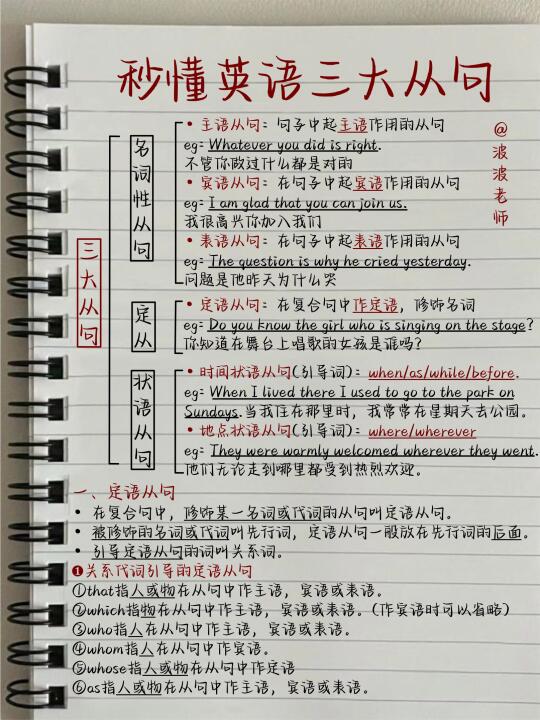 秒懂英语三大从句
@波波老师
三大从句
名词性从句
• 主语从句：句子中起主语作用的从句
eg：Whatever you did is right.
不管你做过什么都是对的
• 宾语从句：在句子中起宾语作用的从句
eg：I am glad that you can join us.
我很高兴你加入我们
• 表语从句：在句子中起表语作用的从句
eg：The question is why he cried yesterday.
问题是他昨天为什么哭
定从
• 定语从句：在复合句中作定语，修饰名词
eg：Do you know the girl who is singing on the stage?
你知道在舞台上唱歌的女孩是谁吗？
状语从句
• 时间状语从句(引导词)：when/as/while/before.
eg：When I lived there I used to go to the park on
Sundays.当我住在那里时，我常常在星期天去公园。
• 地点状语从句(引导词)：where/wherever
eg：They were warmly welcomed wherever they went.
他们无论走到哪里都受到热烈欢迎。
一、定语从句
• 在复合句中，修饰某一名词或代词的从句叫定语从句。
• 被修饰的名词或代词叫先行词，定语从句一般放在先行词的后面。
• 引导定语从句的词叫关系词。
❶关系代词引导的定语从句
①that指人或物在从句中作主语，宾语或表语。
②which指物在从句中作主语，宾语或表语。(作宾语时可以省略)
③who指人在从句中作主语，宾语或表语。
④whom指人在从句中作宾语。
⑤whose指人或物在从句中作定语
⑥as指人或物在从句中作主语，宾语或表语。